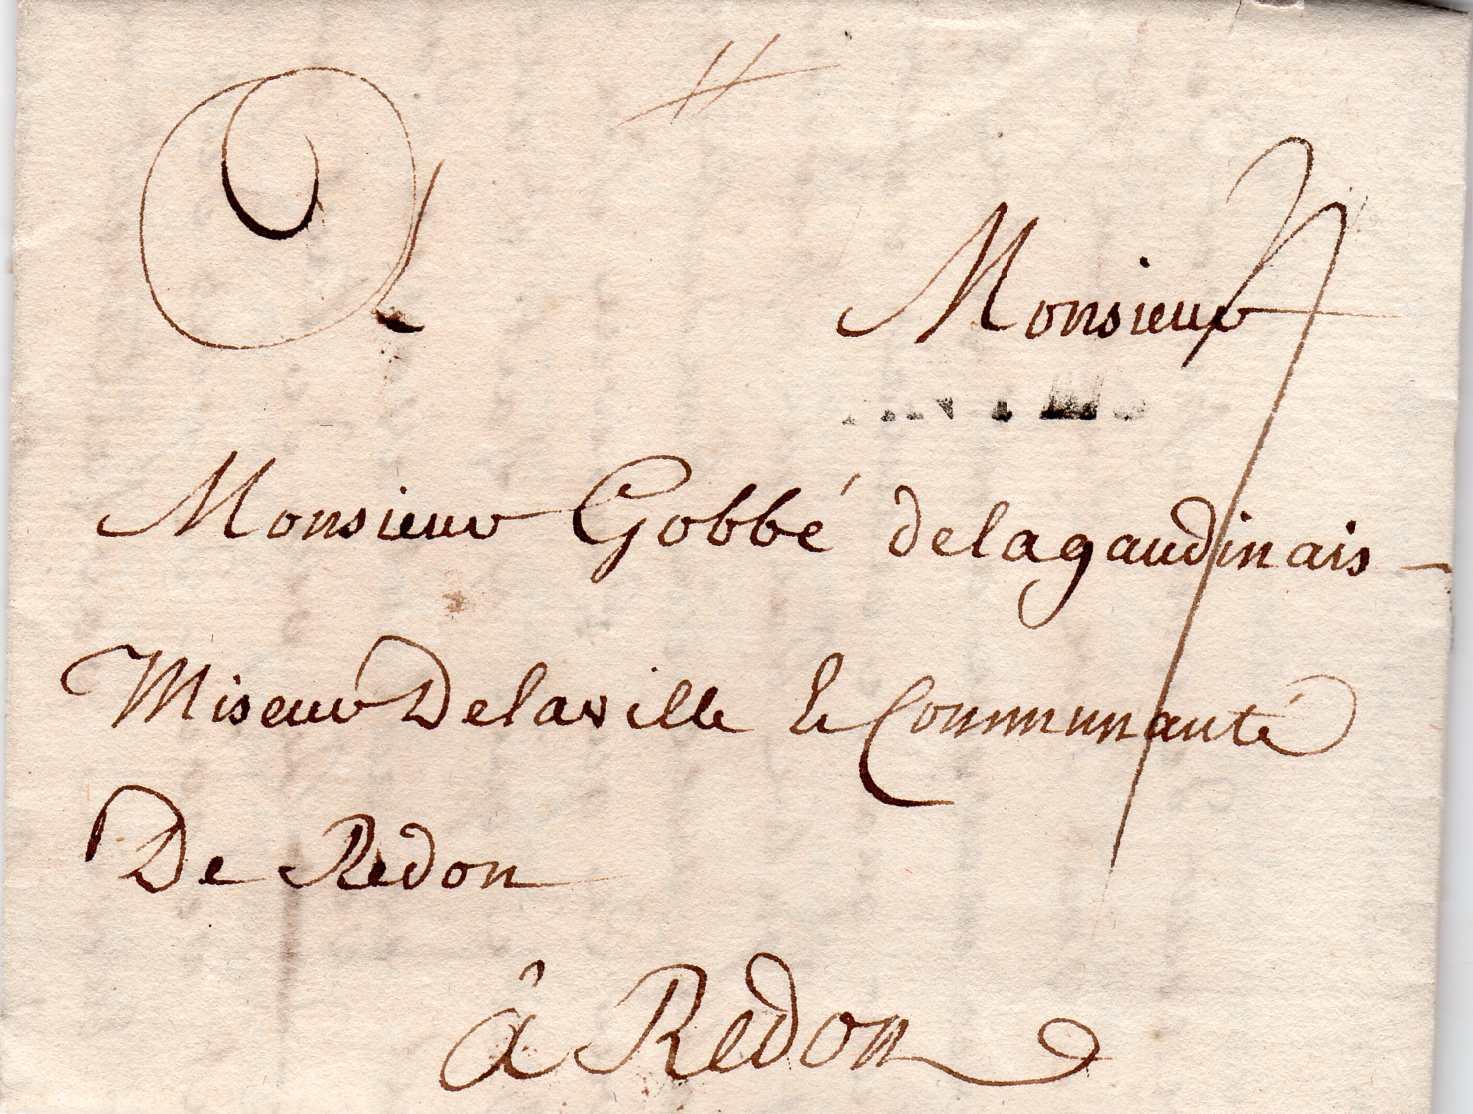 Monsieur
Monsieur Gobbé delagaudinais
Miseur Delaville & Communauté
De Redon
à Redon